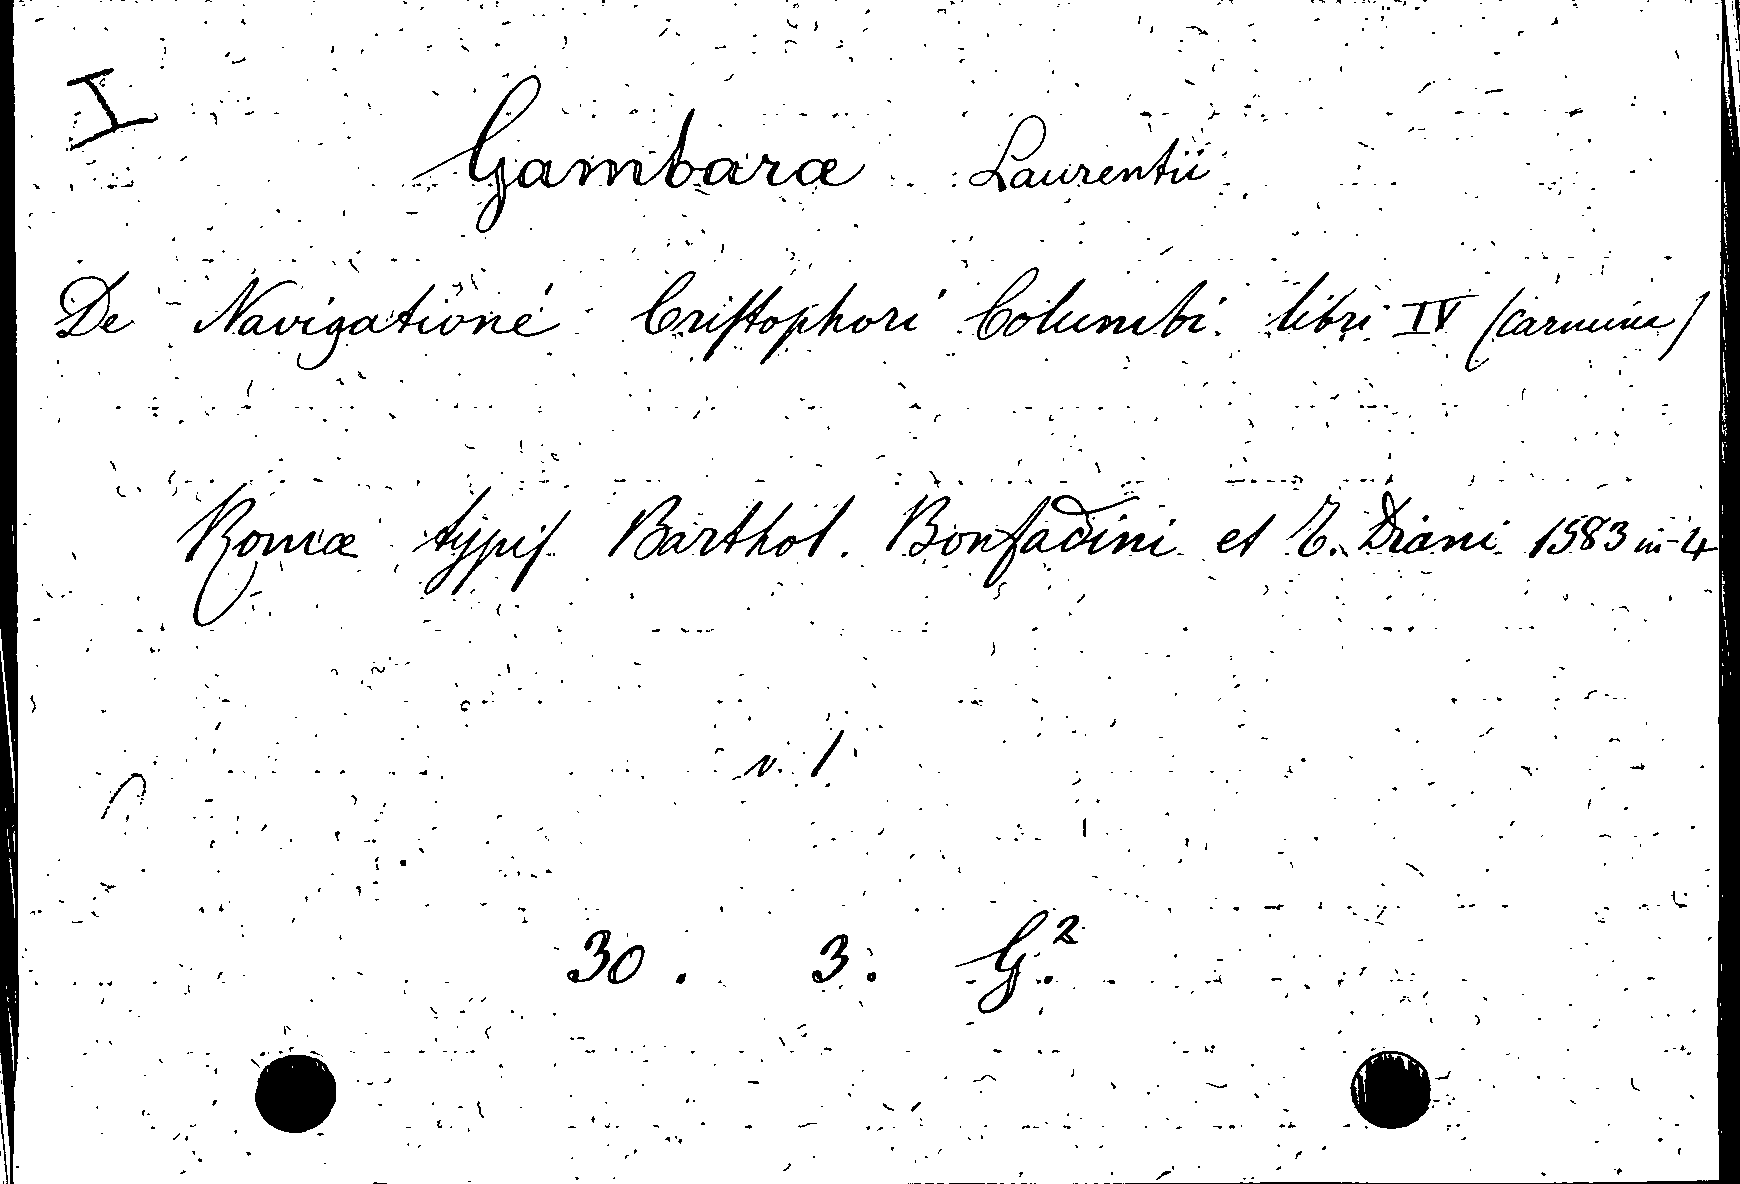 I
Gambaræ Laurentii
De Navigatione Cristophori Columbi libri IV (carmine)
Romæ typis Barthol. Bonfadini et T. Diani 1583 in-4
v. 1
30. 3. G.²